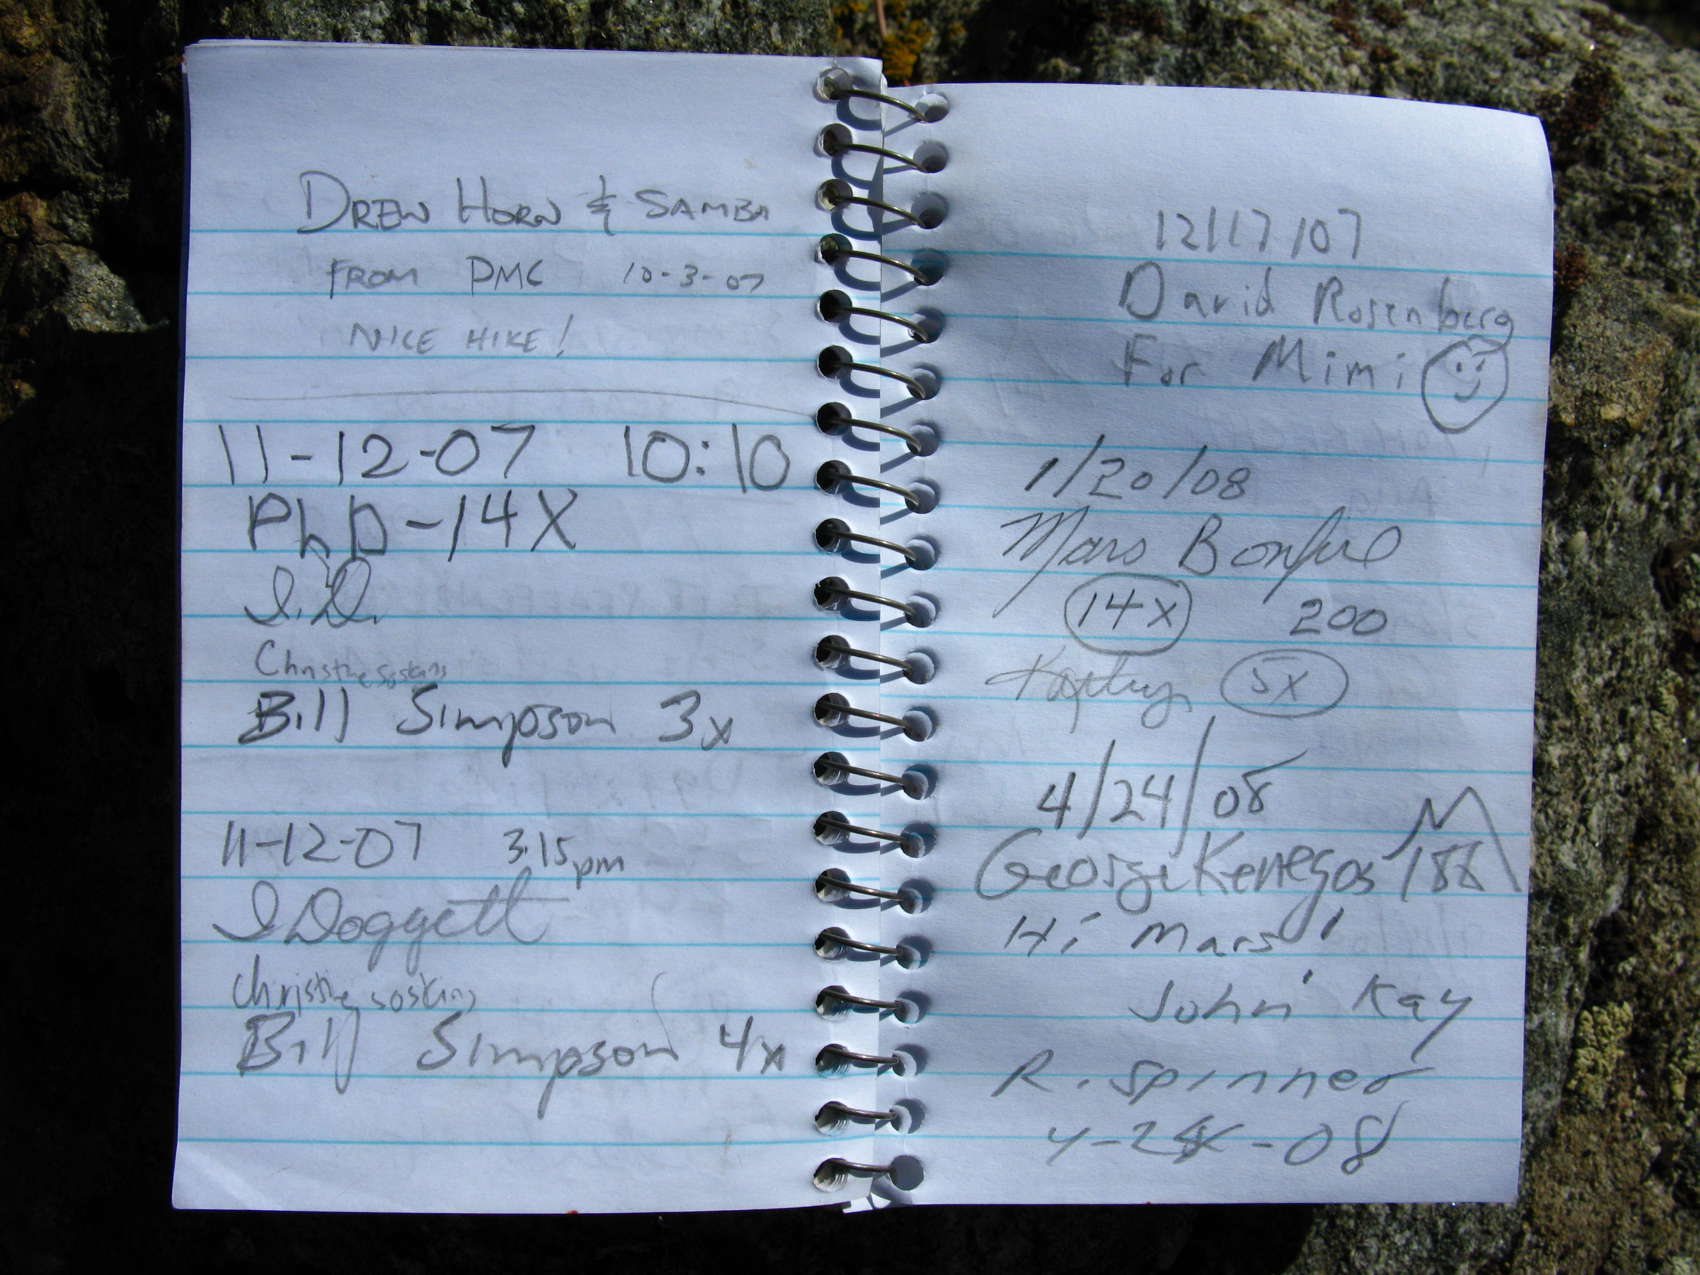 DREW HORN & SAMBA
FROM PMC 10-3-07
NICE HIKE!
11-12-07 10:10
PhD-14X
I.D.
Christine Soskins
Bill Simpson 3x
11-12-07 3:15pm
I Doggett
Christine Soskins
Bill Simpson 4x
12/17/07
David Rosenberg
For Mimi
1/20/08
Mars Bonfire
14x 200
5x
4/24/08
George Kenegos 188
Hi Mars
John Kay
R. Spinner
4-24-08